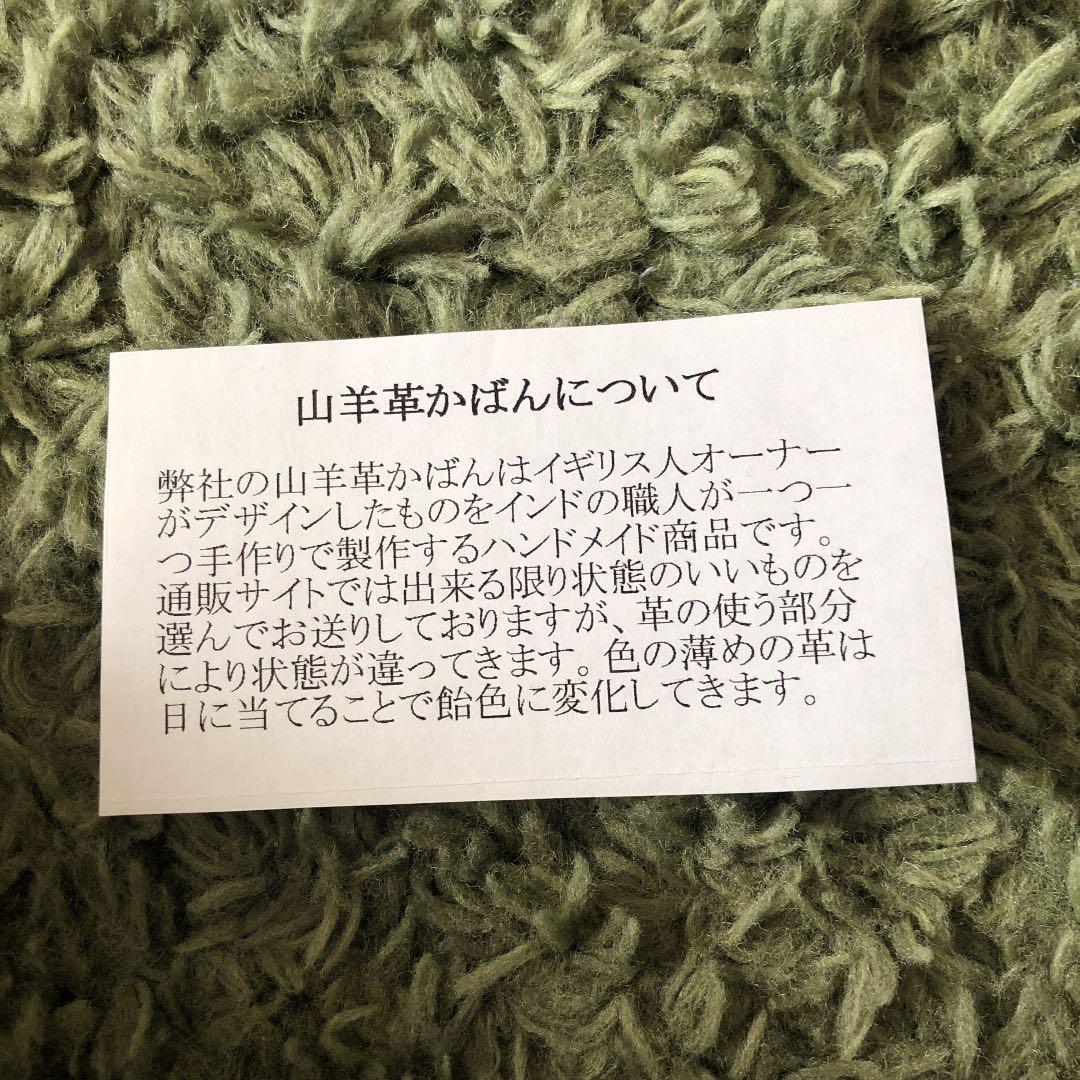 山羊革かばんについて
弊社の山羊革かばんはイギリス人オーナー
がデザインしたものをインドの職人が一つ一
つ手作りで製作するハンドメイド商品です。
通販サイトでは出来る限り状態のいいものを
選んでお送りしておりますが、革の使う部分
により状態が違ってきます。色の薄めの革は
日に当てることで飴色に変化してきます。